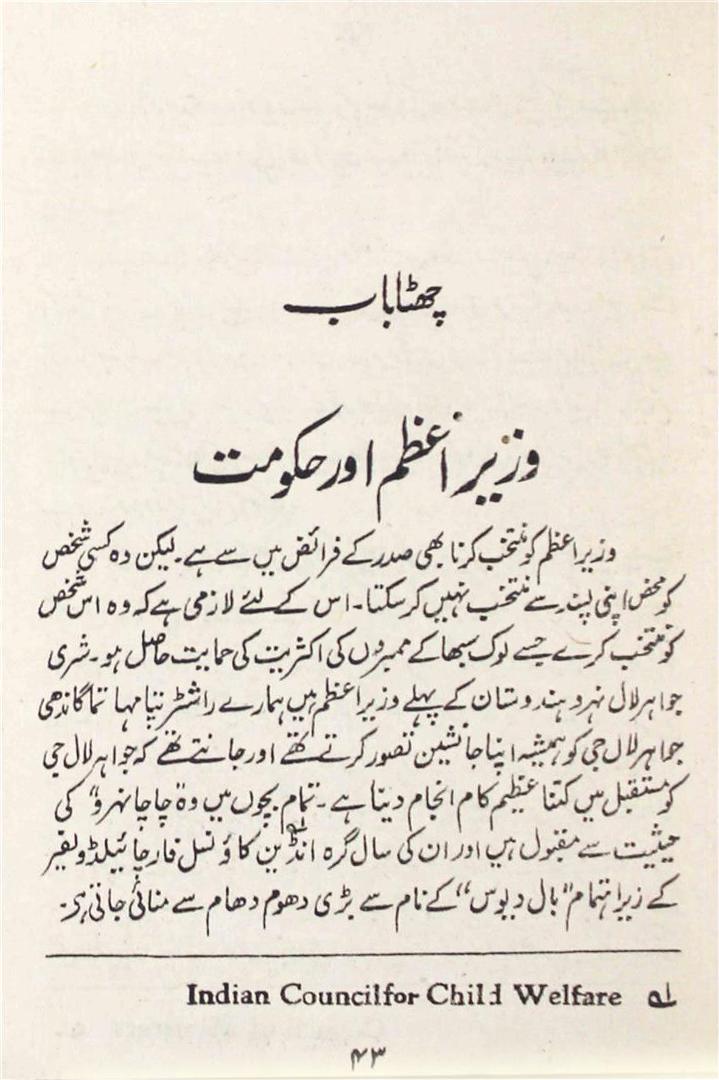 چھٹا باب
وزیر اعظم اور حکومت
وزیر اعظم کو منتخب کرنا بھی صدر کے فرائض میں سے ہے۔ لیکن وہ کسی شخص
کو محض اپنی پسند سے منتخب نہیں کرسکتا۔ اس کے لئے لازمی ہے کہ وہ اس شخص
کو منتخب کرے جسے لوک سبھا کے ممبروں کی اکثریت کی حمایت حاصل ہو۔ شری
جواہر لال نہرو ہندوستان کے پہلے وزیر اعظم ہیں ہمارے راشٹرپتا مہاتما گاندھی
جواہر لال جی کو ہمیشہ اپنا جانشین تصور کرتے تھے اور جانتے تھے کہ جواہر لال جی
کو مستقبل میں کتنا عظیم کام انجام دینا ہے۔ تمام بچوں میں وہ ”چاچا نہرو“ کی
حیثیت سے مقبول ہیں اور ان کی سال گرہ انڈین کاؤنسل فار چائیلڈ ویلفیر لہ
کے زیر اہتمام ”بال دیوس“ کے نام سے بڑی دھوم دھام سے منائی جاتی ہے۔
لہ Indian Councilfor Child Welfare
۴۳